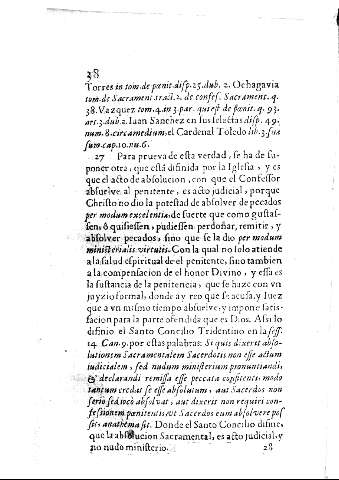 28
Torres in tom.de pœnit.disp.25.dub. 2. Ochagavia
tom.de Sacrament.tract.2. de confes. Sacrament.q.
38. Vazquez tom.4.in 3.par. qui est de pœnit. q. 93.
art.3.dub.2. Iuan Sanchez en sus selectas disp. 49.
num.8.circa medium, el Cardenal Toledo lib.3. suæ
sum.cap.10.nu.6.
27 Para prueva de esta verdad, se ha de su-
poner otra, que está difinida por la Iglesia, y es
que el acto de absolucion, con que el Confessor
absuelve al penitente, es acto judicial, porque
Christo no dio la potestad de absolver de pecados
per modum excelentiæ, de suerte que como gustas-
sen, ò quisiessen, pudiessen perdonar, remitir, y
absolver pecados, sino que se la dio per modum
ministerialis virtutis. Con la qual no solo atiende
a la salud espiritual de el penitente, sino tambien
a la compensacion de el honor Divino, y essa es
la sustancia de la penitencia, que se haze con vn
juyzio formal, donde ay reo que se acusa, y Iuez
que a vn mismo tiempo absuelve, y impone satis-
facion para la parte ofendida que es Dios. Assi lo
difinio el Santo Concilio Tridentino en la sess.
14. Can.9. por estas palabras: Si quis dixerit abso-
lutionem Sacramentalem Sacerdotis non esse actum
iudicialem, sed nudum ministerium pronuntiandi,
& declarandi remissa esse peccata confitenti, modo
tantum credat se esse absolutum, aut Sacerdos non
serio sed ioco absolvat, aut dixerit non requiri con-
fessionem pœnitentis vt Sacerdos eum absolvere pos
sit, anathema sit. Donde el Santo Concilio difine,
que la absolucion Sacramental, es acto judicial, y
no nudo ministerio.
28